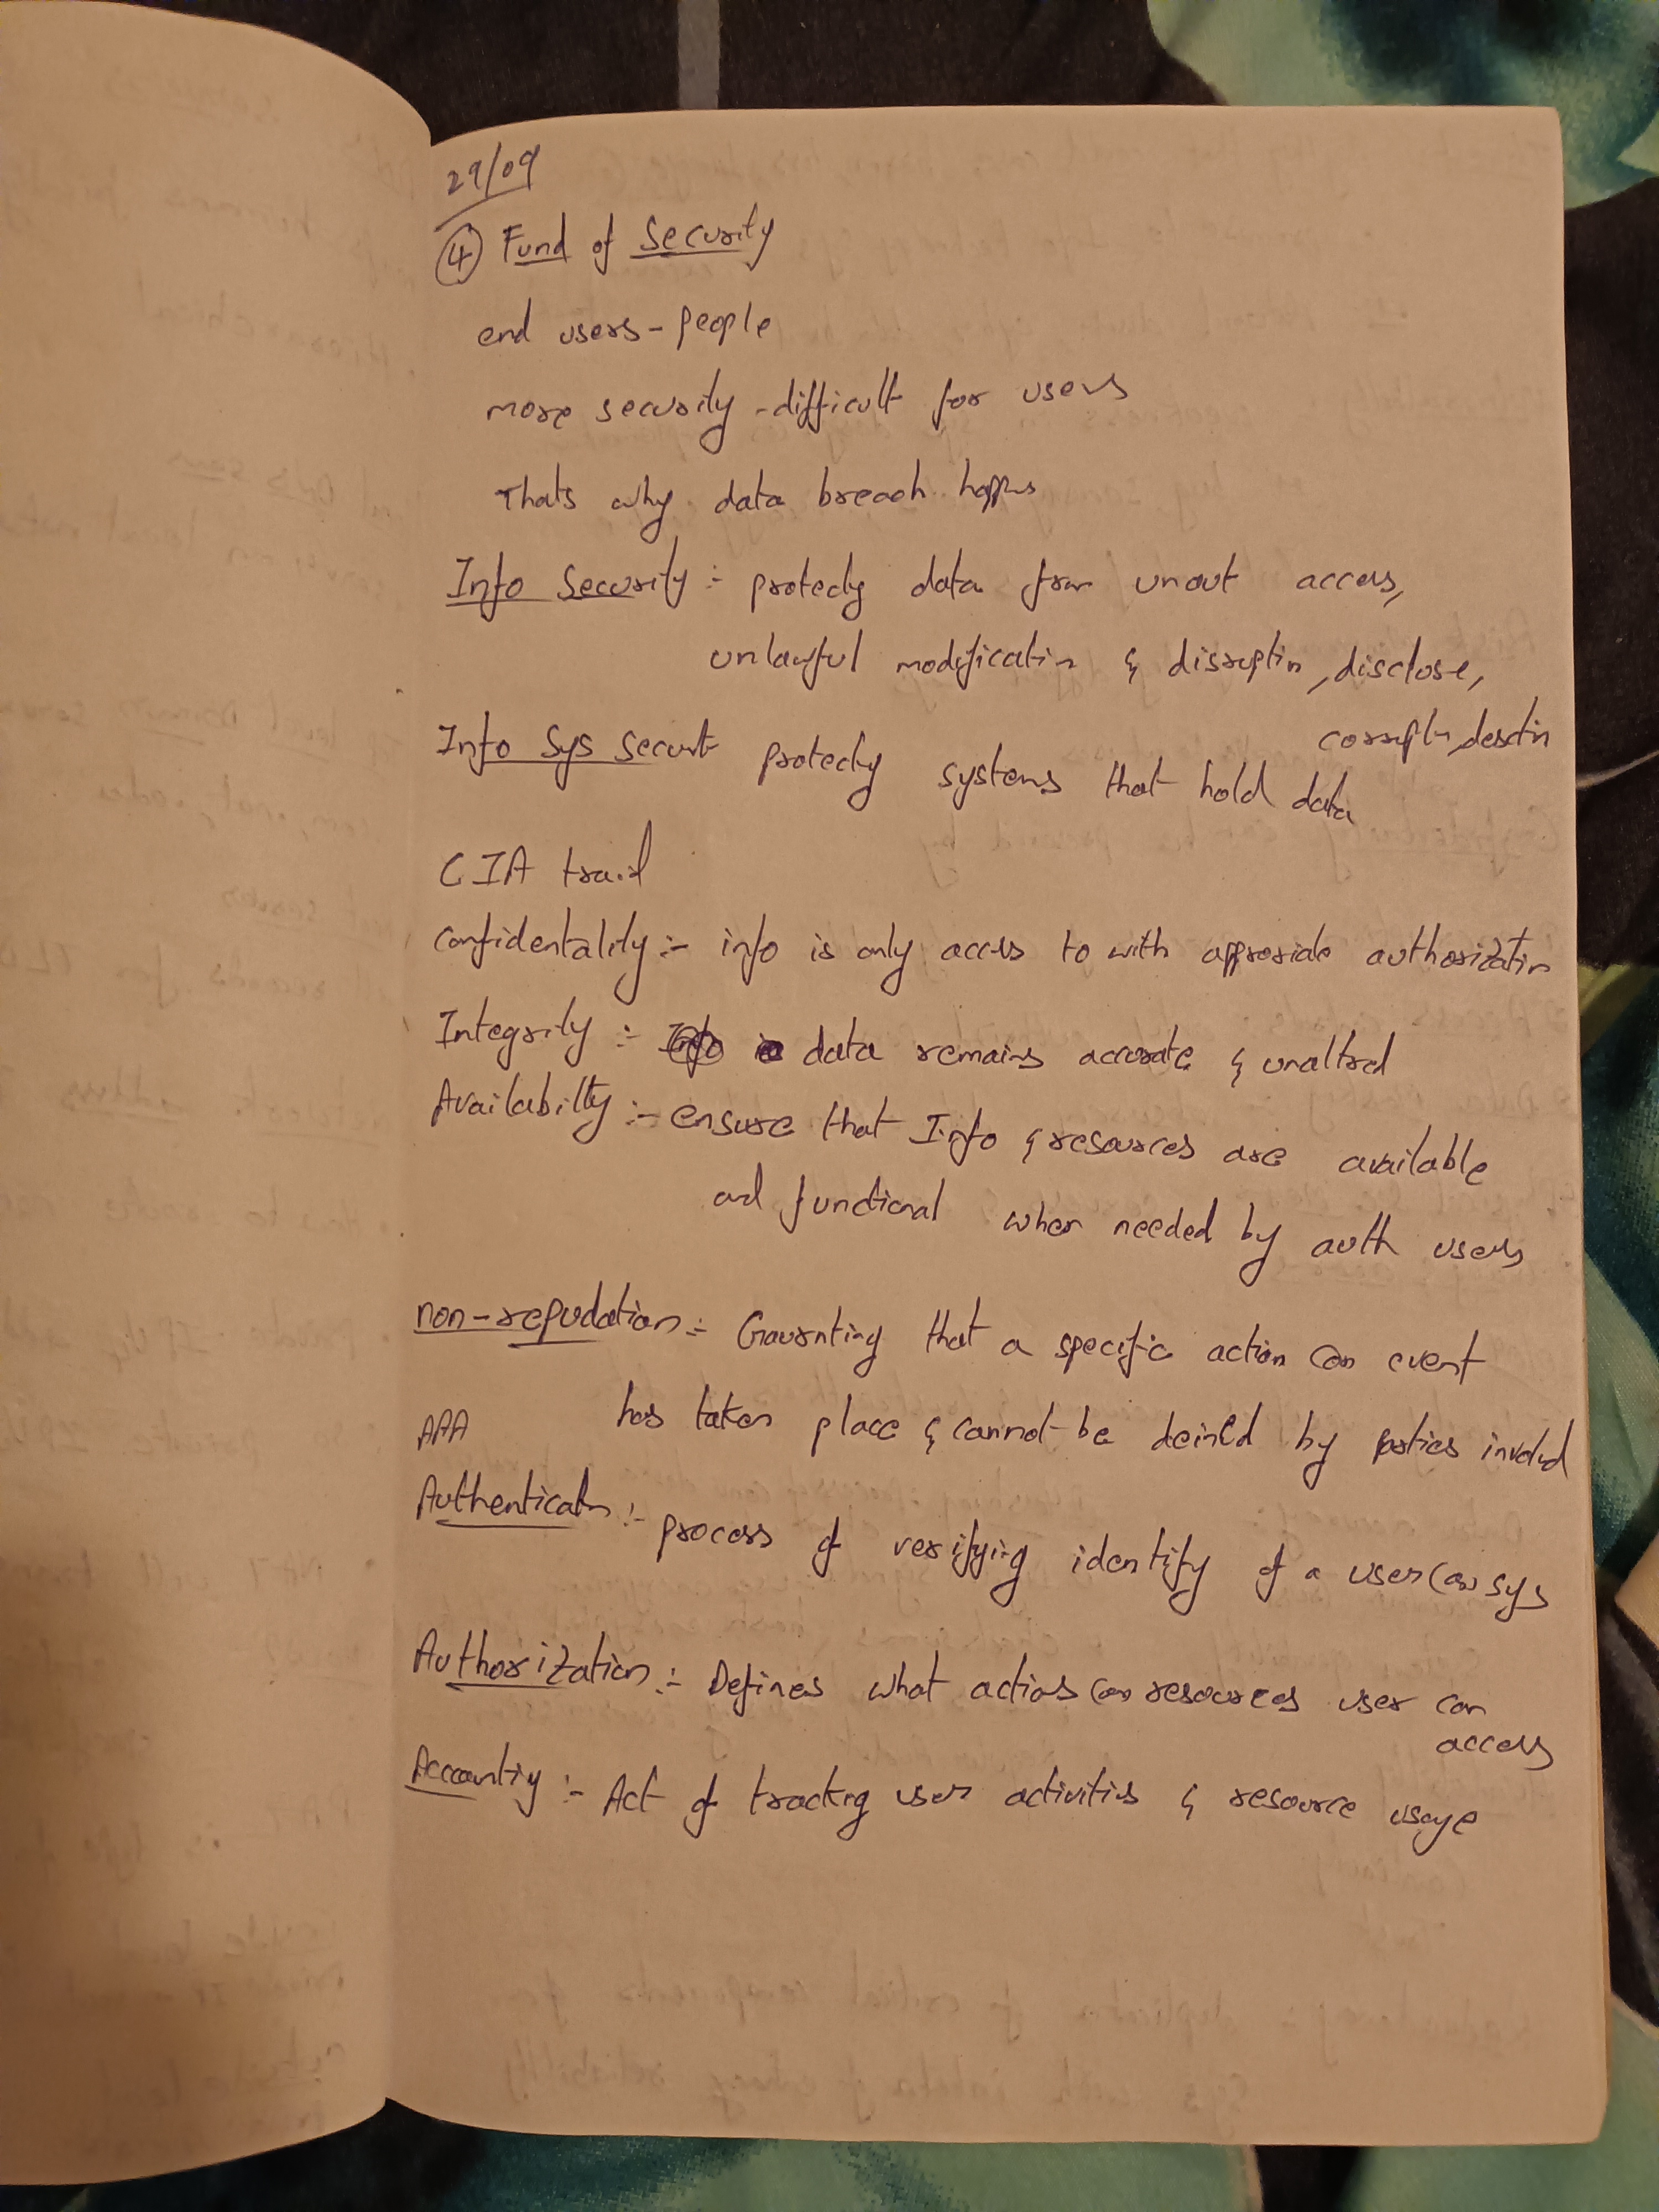 29/09
④ Fund of Security
end users - people
more security - difficult for users
Thats why data breach happns
Info Security :- protectg data from unaut access,
unlawful modificatin & disruptin, disclose,
corruptn, destn
Info Sys Securt protectg systems that hold data
CIA traid
Confidentality :- info is only access to with approriate authorizatin
Integrity :- data remains accurate & unaltred
Availabilty :- ensure that Info & resources are available
and functional when needed by auth users
non-repudation :- Gaurnting that a specific action (or) event
has taken place & cannot be deined by parties involved
AAA
Authenticatn :- process of verifying identify of a user (or) sys
Authorization :- Defines what actios (or) resources user can
access
Accountig :- Act of trackng user activitis & resource usage